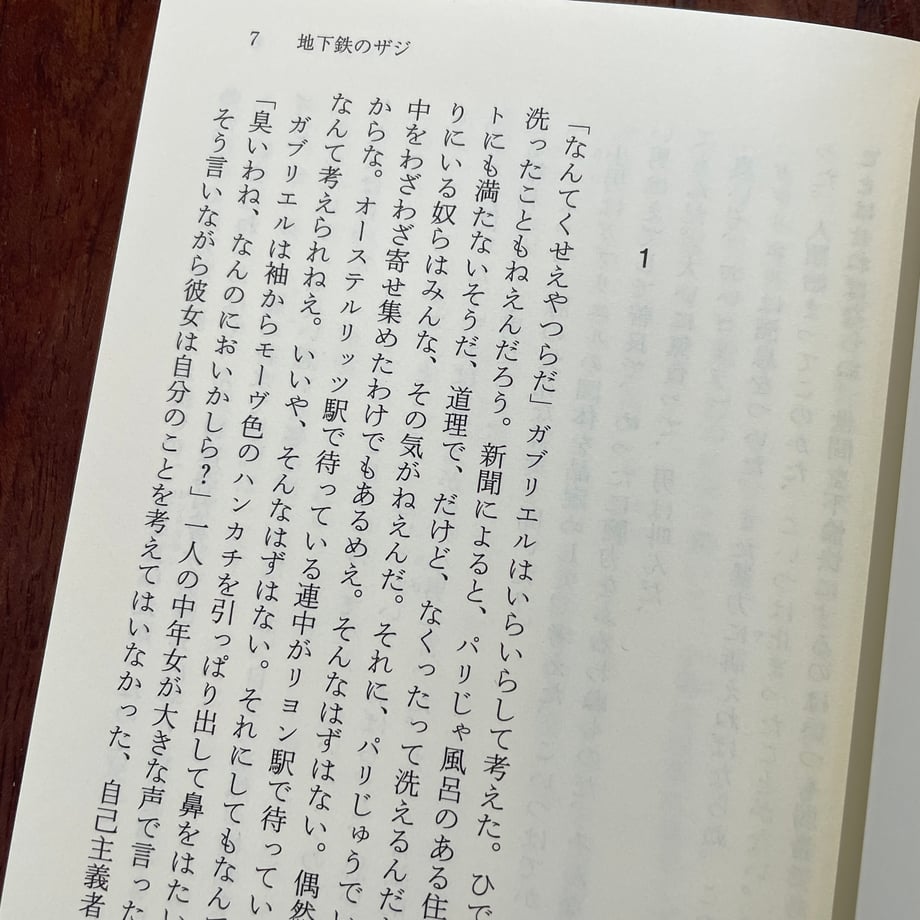 7 地下鉄のザジ
1
「なんてくせえやつらだ」ガブリエルはいらいらして考えた。ひで
洗ったこともねえんだろう。新聞によると、パリじゃ風呂のある住
トにも満たないそうだ、道理で、だけど、なくったって洗えるんだ
りにいる奴らはみんな、その気がねえんだ。それに、パリじゅうで
中をわざわざ寄せ集めたわけでもあるめえ。そんなはずはない。偶然
からな。オーステルリッツ駅で待っている連中がリヨン駅で待ってい
なんて考えられねえ。いいや、そんなはずはない。それにしてもなんて
ガブリエルは袖からモーヴ色のハンカチを引っぱり出して鼻をはたい
「臭いわね、なんのにおいかしら？」一人の中年女が大きな声で言った
そう言いながら彼女は自分のことを考えてはいなかった、自己主義者